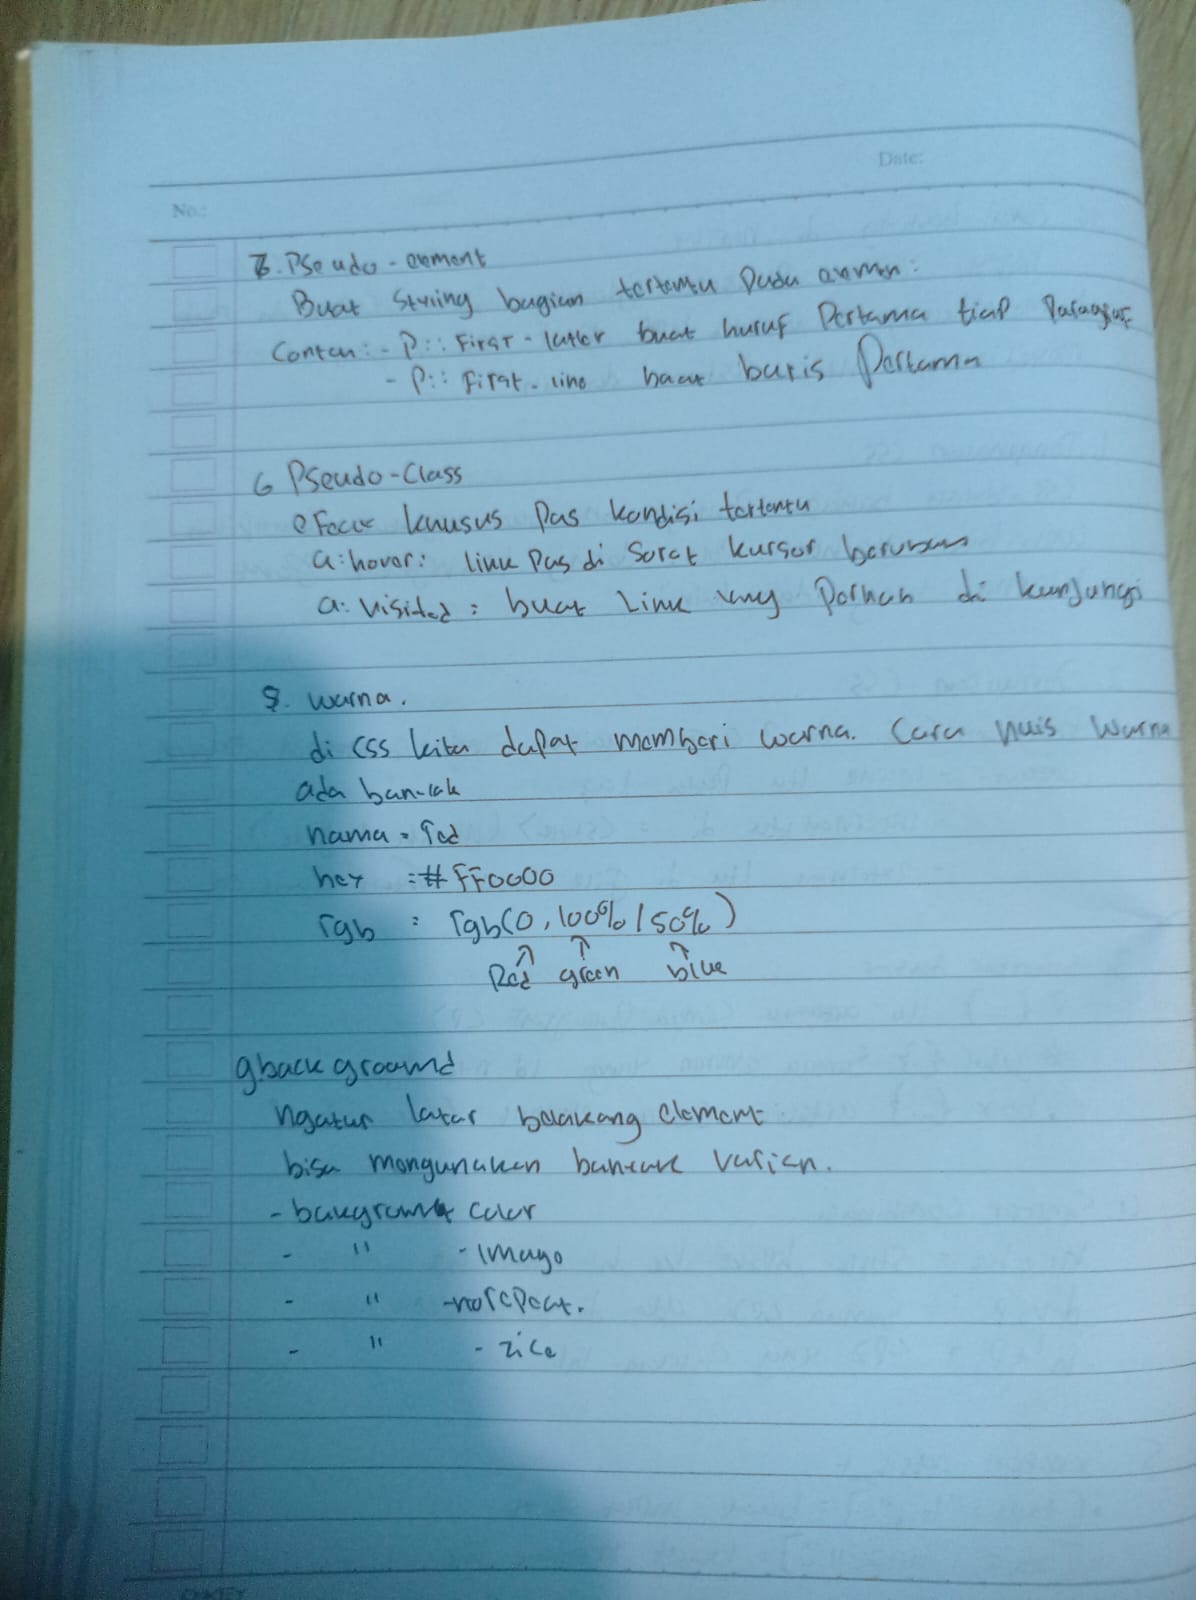 Date:
No.:
7. Pseudo-element
Buat Styling bagian tertentu pada elemen:
Contoh: - P::First-letter buat huruf Pertama tiap Paragraf
- P::First-line buat baris Pertama
6 Pseudo-Class
efect khusus pas kondisi tertentu
a:hover: link pas di sorot kursor berubah
a:visited: buat Link yang Pernah di kunjungi
8. warna.
di css kita dapat memberi warna. Cara nulis warna
ada banyak
nama = red
hex :#FF0000
rgb : rgb(0,100%/50%)
Red green blue
9 background
ngatur latar belakang element
bisa mengunakan banyak varian.
- background color
- " -image
- " -norepeat.
- " -zice